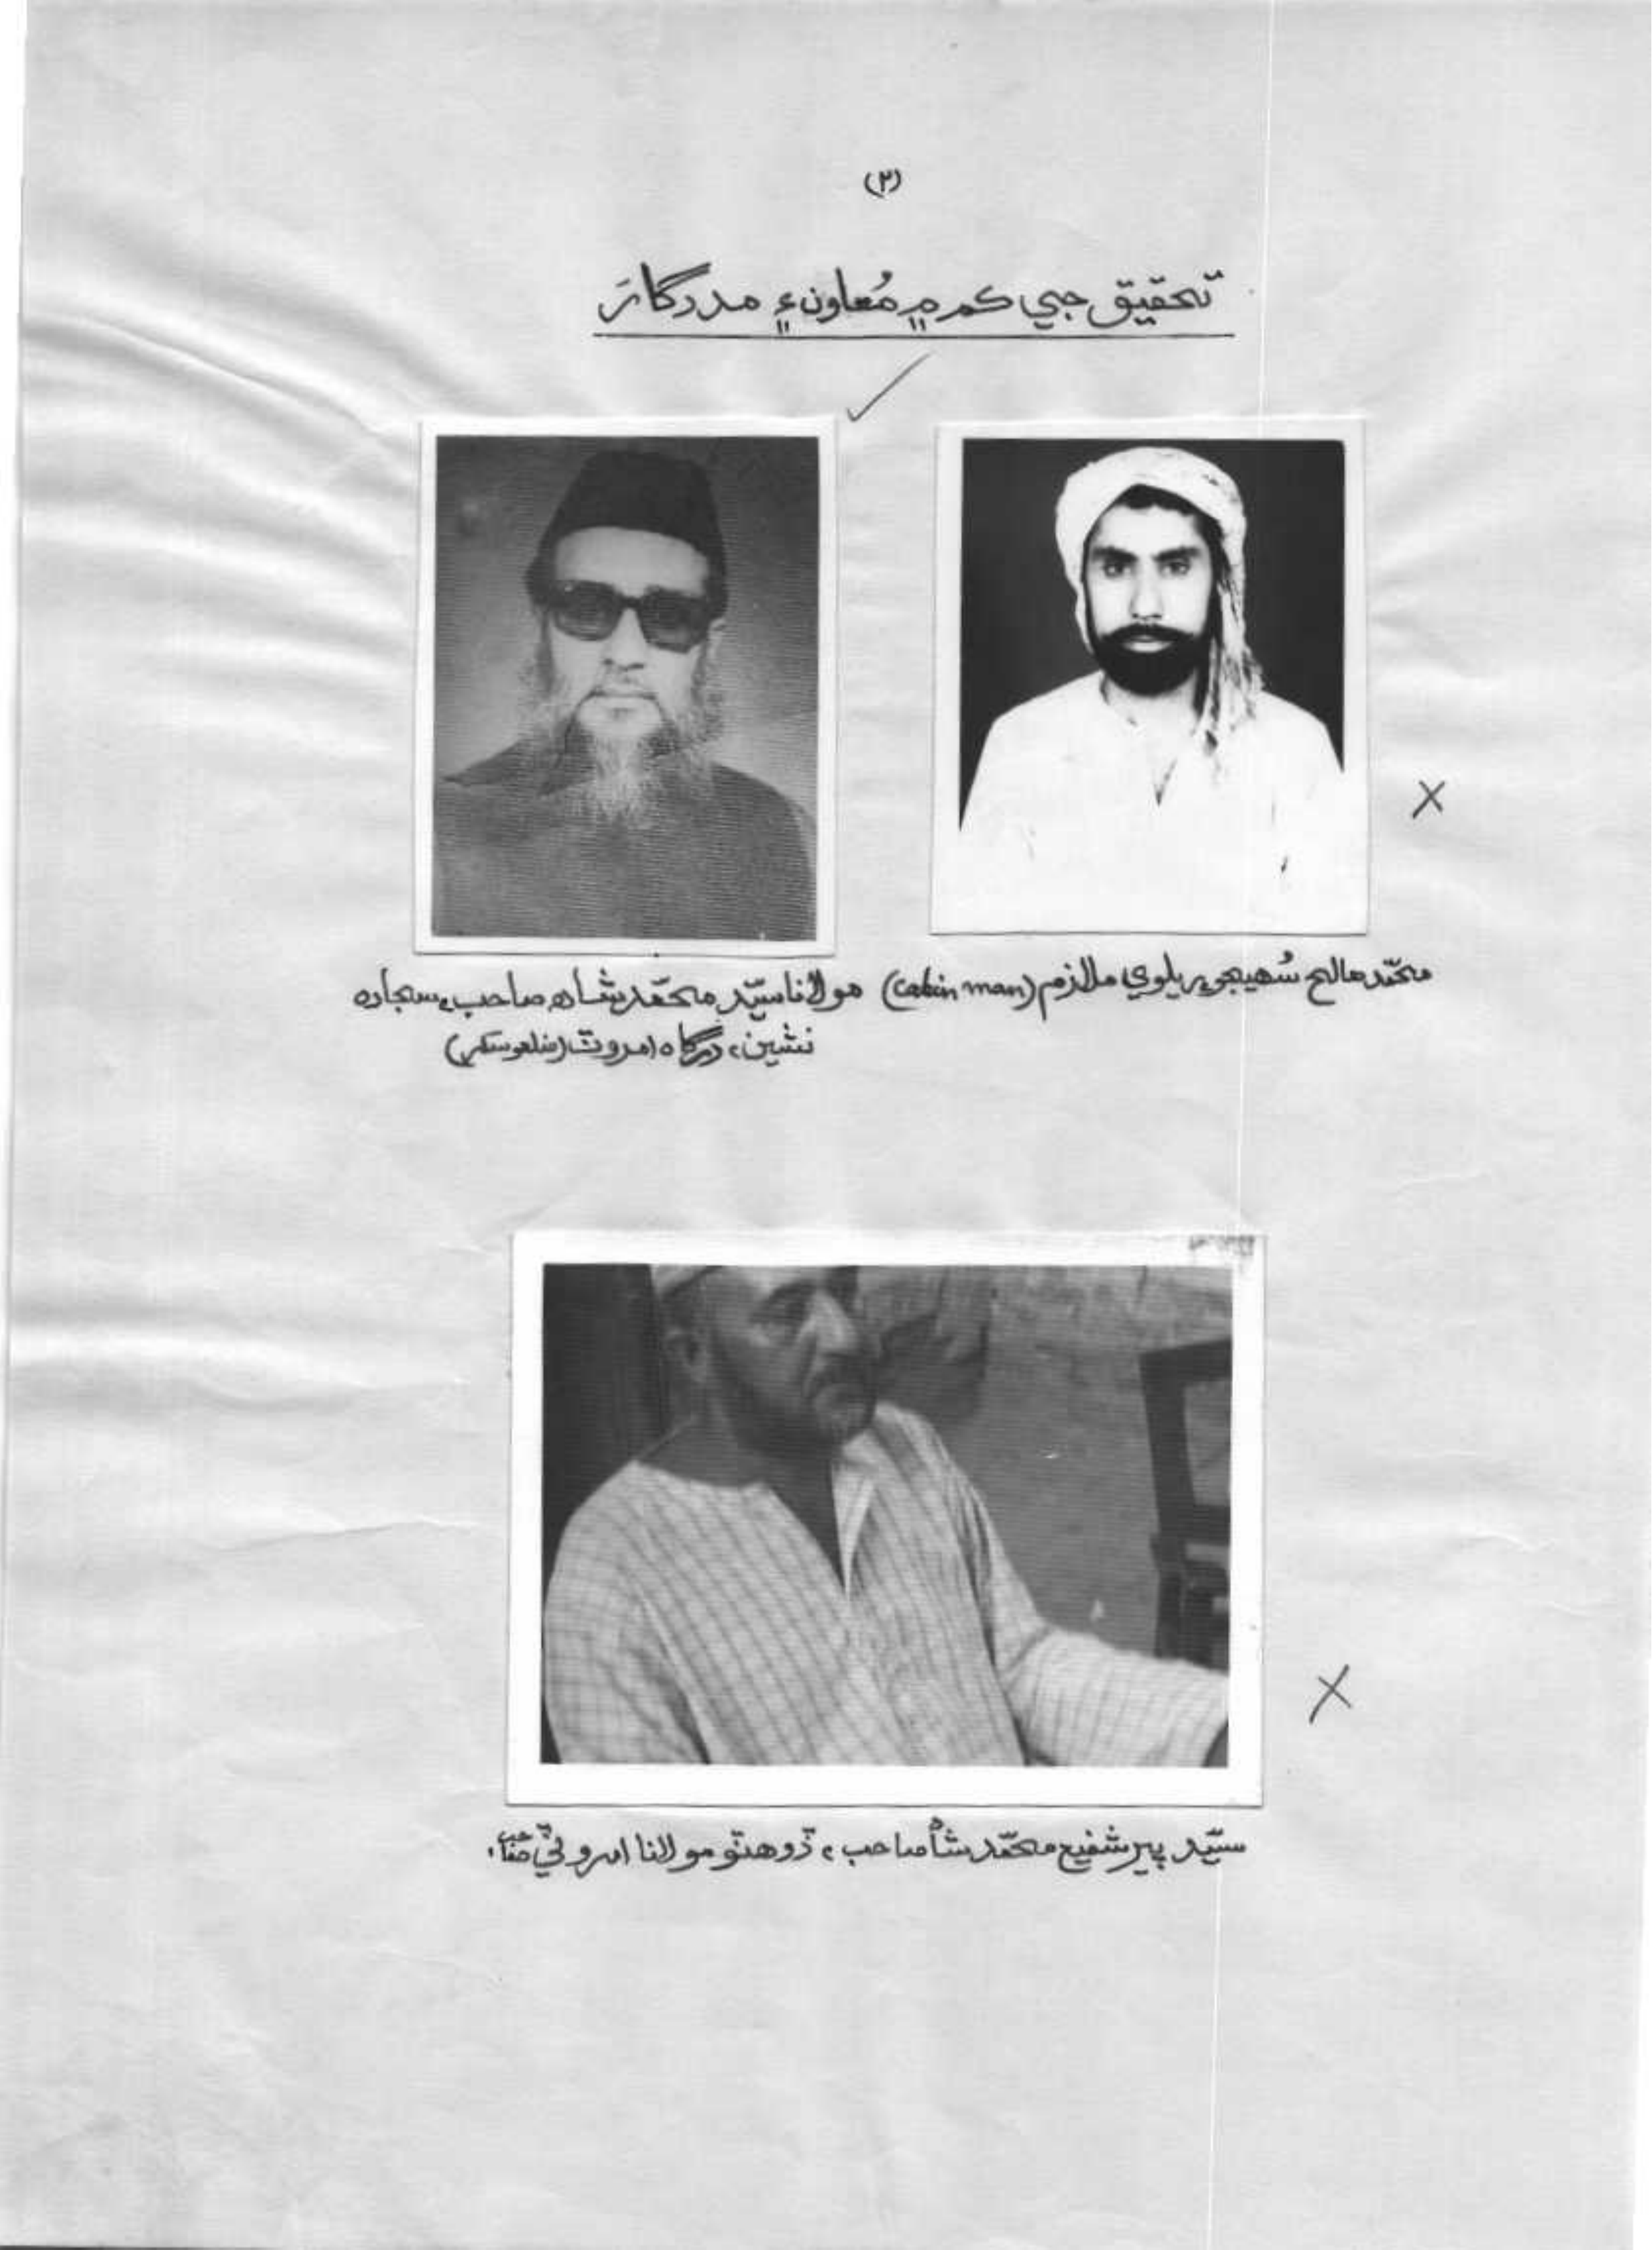 (٣)
تحقيق جي ڪم ۾ مُعاون ۽ مددگارَ
محمّد صالح سُهيجو، ريلوي ملازم (Cabin man)
مولانا سيّد محمّد شاھ صاحب، سجاده
نشين، درگاھ امروٽ (ضلعو سکر)
سيّد پير شفيع محمّد شاھ صاحب، ڏوهٽو مولانا امروٽيؒ